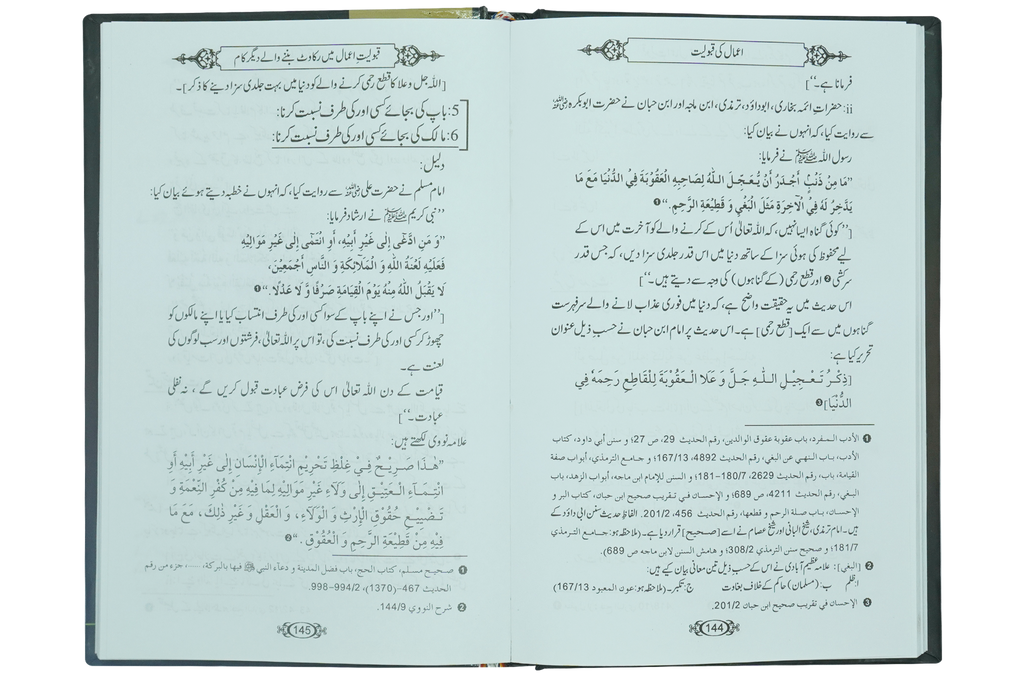 اعمال کی قبولیت
فرمانا ہے۔‘‘]
ii: حضراتِ ائمہ بخاری، ابوداؤد، ترمذی، ابن ماجہ اور ابن حبان نے حضرت ابوبکرہ رضی اللہ عنہ
سے روایت کیا، کہ انہوں نے بیان کیا:
رسول اللہ ﷺ نے فرمایا:
”مَا مِنْ ذَنْبٍ أَجْدَرُ أَنْ يُّعَجِّلَ اللّٰهُ لِصَاحِبِهِ الْعَقُوْبَةَ فِي الدُّنْيَا مَعَ مَا
يَدَّخِرُ لَهُ فِي الْآخِرَةِ مَثَلَ الْبَغْيِ وَ قَطِيْعَةِ الرَّحِمِ.“ ❶
[’’کوئی گناہ ایسا نہیں، کہ اللہ تعالیٰ اُس کے کرنے والے کو آخرت میں اس کے
لیے محفوظ کی ہوئی سزا کے ساتھ دنیا میں اس قدر جلدی سزا دیں، کہ جس قدر
سرکشی ❷ اور قطع رحمی (کے گناہوں) کی وجہ سے دیتے ہیں۔‘‘]
اس حدیث میں یہ حقیقت واضح ہے، کہ دنیا میں فوری عذاب لانے والے سرفہرست
گناہوں میں سے ایک [قطع رحمی] ہے۔ اس حدیث پر امام ابن حبان نے حسبِ ذیل عنوان
تحریر کیا ہے:
[ذِكْرُ تَعْجِيْلِ اللّٰهِ جَلَّ وَ عَلَا الْعَقُوْبَةَ لِلْقَاطِعِ رَحِمَهُ فِي
الدُّنْيَا] ❸
❶ الأدب المفرد، باب عقوبة عقوق الوالدين، رقم الحديث 29، ص 27؛ و سنن أبي داود، كتاب
الأدب، باب النهي عن البغي، رقم الحديث 4892، 167/13؛ و جامع الترمذي، أبواب صفة
القيامة، باب، رقم الحديث 2629، 180/7-181؛ و السنن للإمام ابن ماجه، أبواب الزهد، باب
البغي، رقم الحديث 4211، ص 689؛ و الإحسان في تقريب صحيح ابن حبان، كتاب البر و
الإحسان، باب صلة الرحم و قطعها، رقم الحديث 456، 201/2. الفاظِ حدیث سنن ابی داؤد کے
ہیں۔ امام ترمذی، شیخ البانی اور شیخ عصام نے اسے [صحیح] قرار دیا ہے۔ (ملاحظہ ہو: جامع الترمذي
181/7؛ و صحيح سنن الترمذي 308/2؛ و هامش السنن لابن ماجه ص 689).
❷ [البغي]: علامہ عظیم آبادی نے اس کے حسبِ ذیل تین معانی بیان کیے ہیں:
ا: ظلم ب: (مسلمان) حاکم کے خلاف بغاوت ج: تکبر۔ (ملاحظہ ہو: عون المعبود 167/13)
❸ الإحسان في تقريب صحيح ابن حبان 201/2.
144
قبولیتِ اعمال میں رکاوٹ بننے والے دیگر کام
[اللہ جل وعلا کا قطع رحمی کرنے والے کو دنیا میں بہت جلدی سزا دینے کا ذکر]۔
5: باپ کی بجائے کسی اور کی طرف نسبت کرنا:
6: مالک کی بجائے کسی اور کی طرف نسبت کرنا:
دلیل:
امام مسلم نے حضرت علی رضی اللہ عنہ سے روایت کیا، کہ انہوں نے خطبہ دیتے ہوئے بیان کیا:
’’نبی کریم ﷺ نے ارشاد فرمایا:
”وَ مَنِ ادَّعٰى إِلٰى غَيْرِ أَبِيْهِ، أَوِ انْتَمٰى إِلٰى غَيْرِ مَوَالِيْهِ
فَعَلَيْهِ لَعْنَةُ اللّٰهِ وَ الْمَلَائِكَةِ وَ النَّاسِ أَجْمَعِيْنَ،
لَا يَقْبَلُ اللّٰهُ مِنْهُ يَوْمَ الْقِيَامَةِ صَرْفًا وَّ لَا عَدْلًا.“ ❶
[’’اور جس نے اپنے باپ کے سوا کسی اور کی طرف انتساب کیا یا اپنے مالکوں کو
چھوڑ کر کسی اور کی طرف نسبت کی، تو اس پر اللہ تعالیٰ، فرشتوں اور سب لوگوں کی
لعنت ہے۔
قیامت کے دن اللہ تعالیٰ اس کی فرض عبادت قبول کریں گے ، نہ نفلی
عبادت۔‘‘]
علامہ نووی لکھتے ہیں:
”هٰذَا صَرِيْحٌ فِيْ غِلَظِ تَحْرِيْمِ انْتِمَاءِ الْإِنْسَانِ إِلٰى غَيْرِ أَبِيْهِ أَوِ
انْتِمَاءِ الْعَتِيْقِ إِلٰى وَلَاءِ غَيْرِ مَوَالِيْهِ لِمَا فِيْهِ مِنْ كُفْرِ النِّعْمَةِ وَ
تَضْيِيْعِ حُقُوْقِ الْإِرْثِ وَ الْوَلَاءِ، وَ الْعَقْلِ وَ غَيْرِ ذٰلِكَ، مَعَ مَا
فِيْهِ مِنْ قَطِيْعَةِ الرَّحِمِ وَ الْعُقُوْقِ.“ ❷
❶ صحيح مسلم، كتاب الحج، باب فضل المدينة و دعاء النبي ﷺ فيها بالبركة، ......، جزء من رقم
الحديث 467-(1370)، 994/2-998.
❷ شرح النووي 144/9.
145